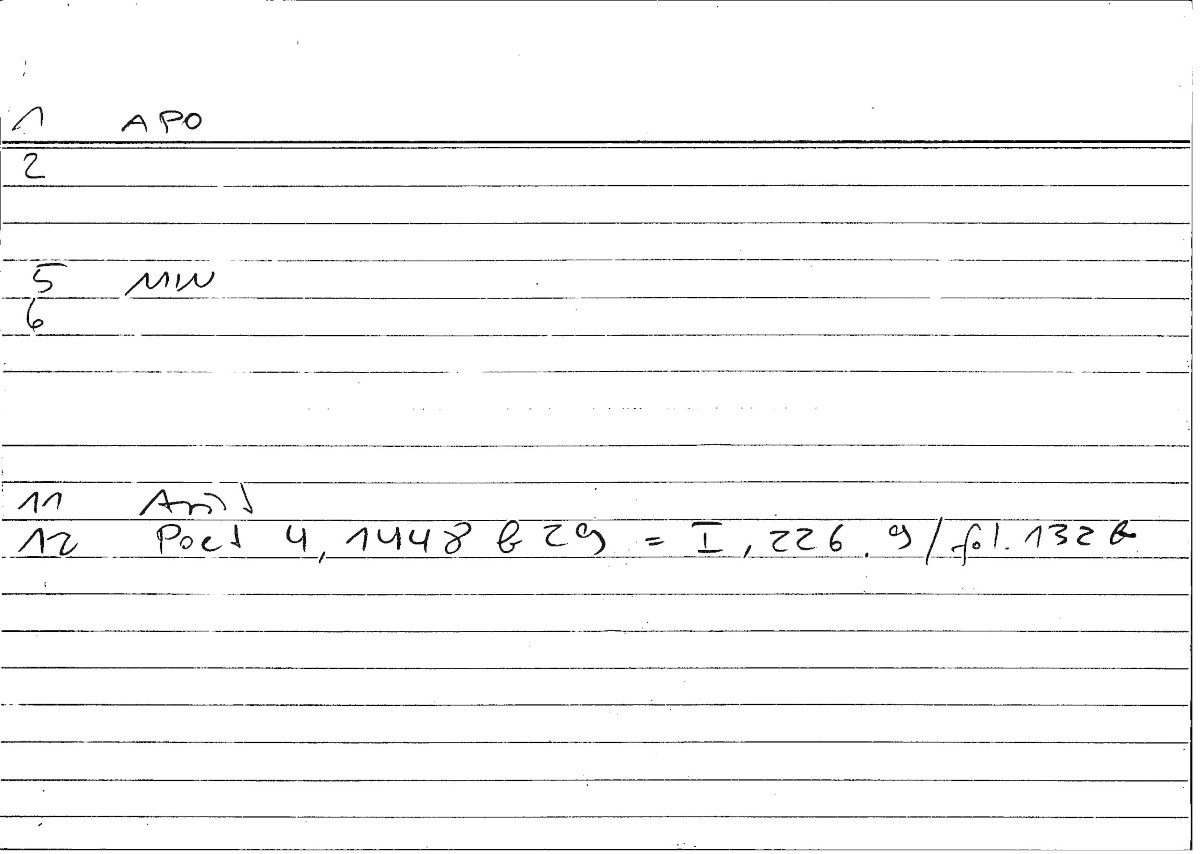 1 APO
2
5 MIN
6
11 Arist
12 Poet 4, 1448 b 29 = I, 226. 9 / fol. 132 b